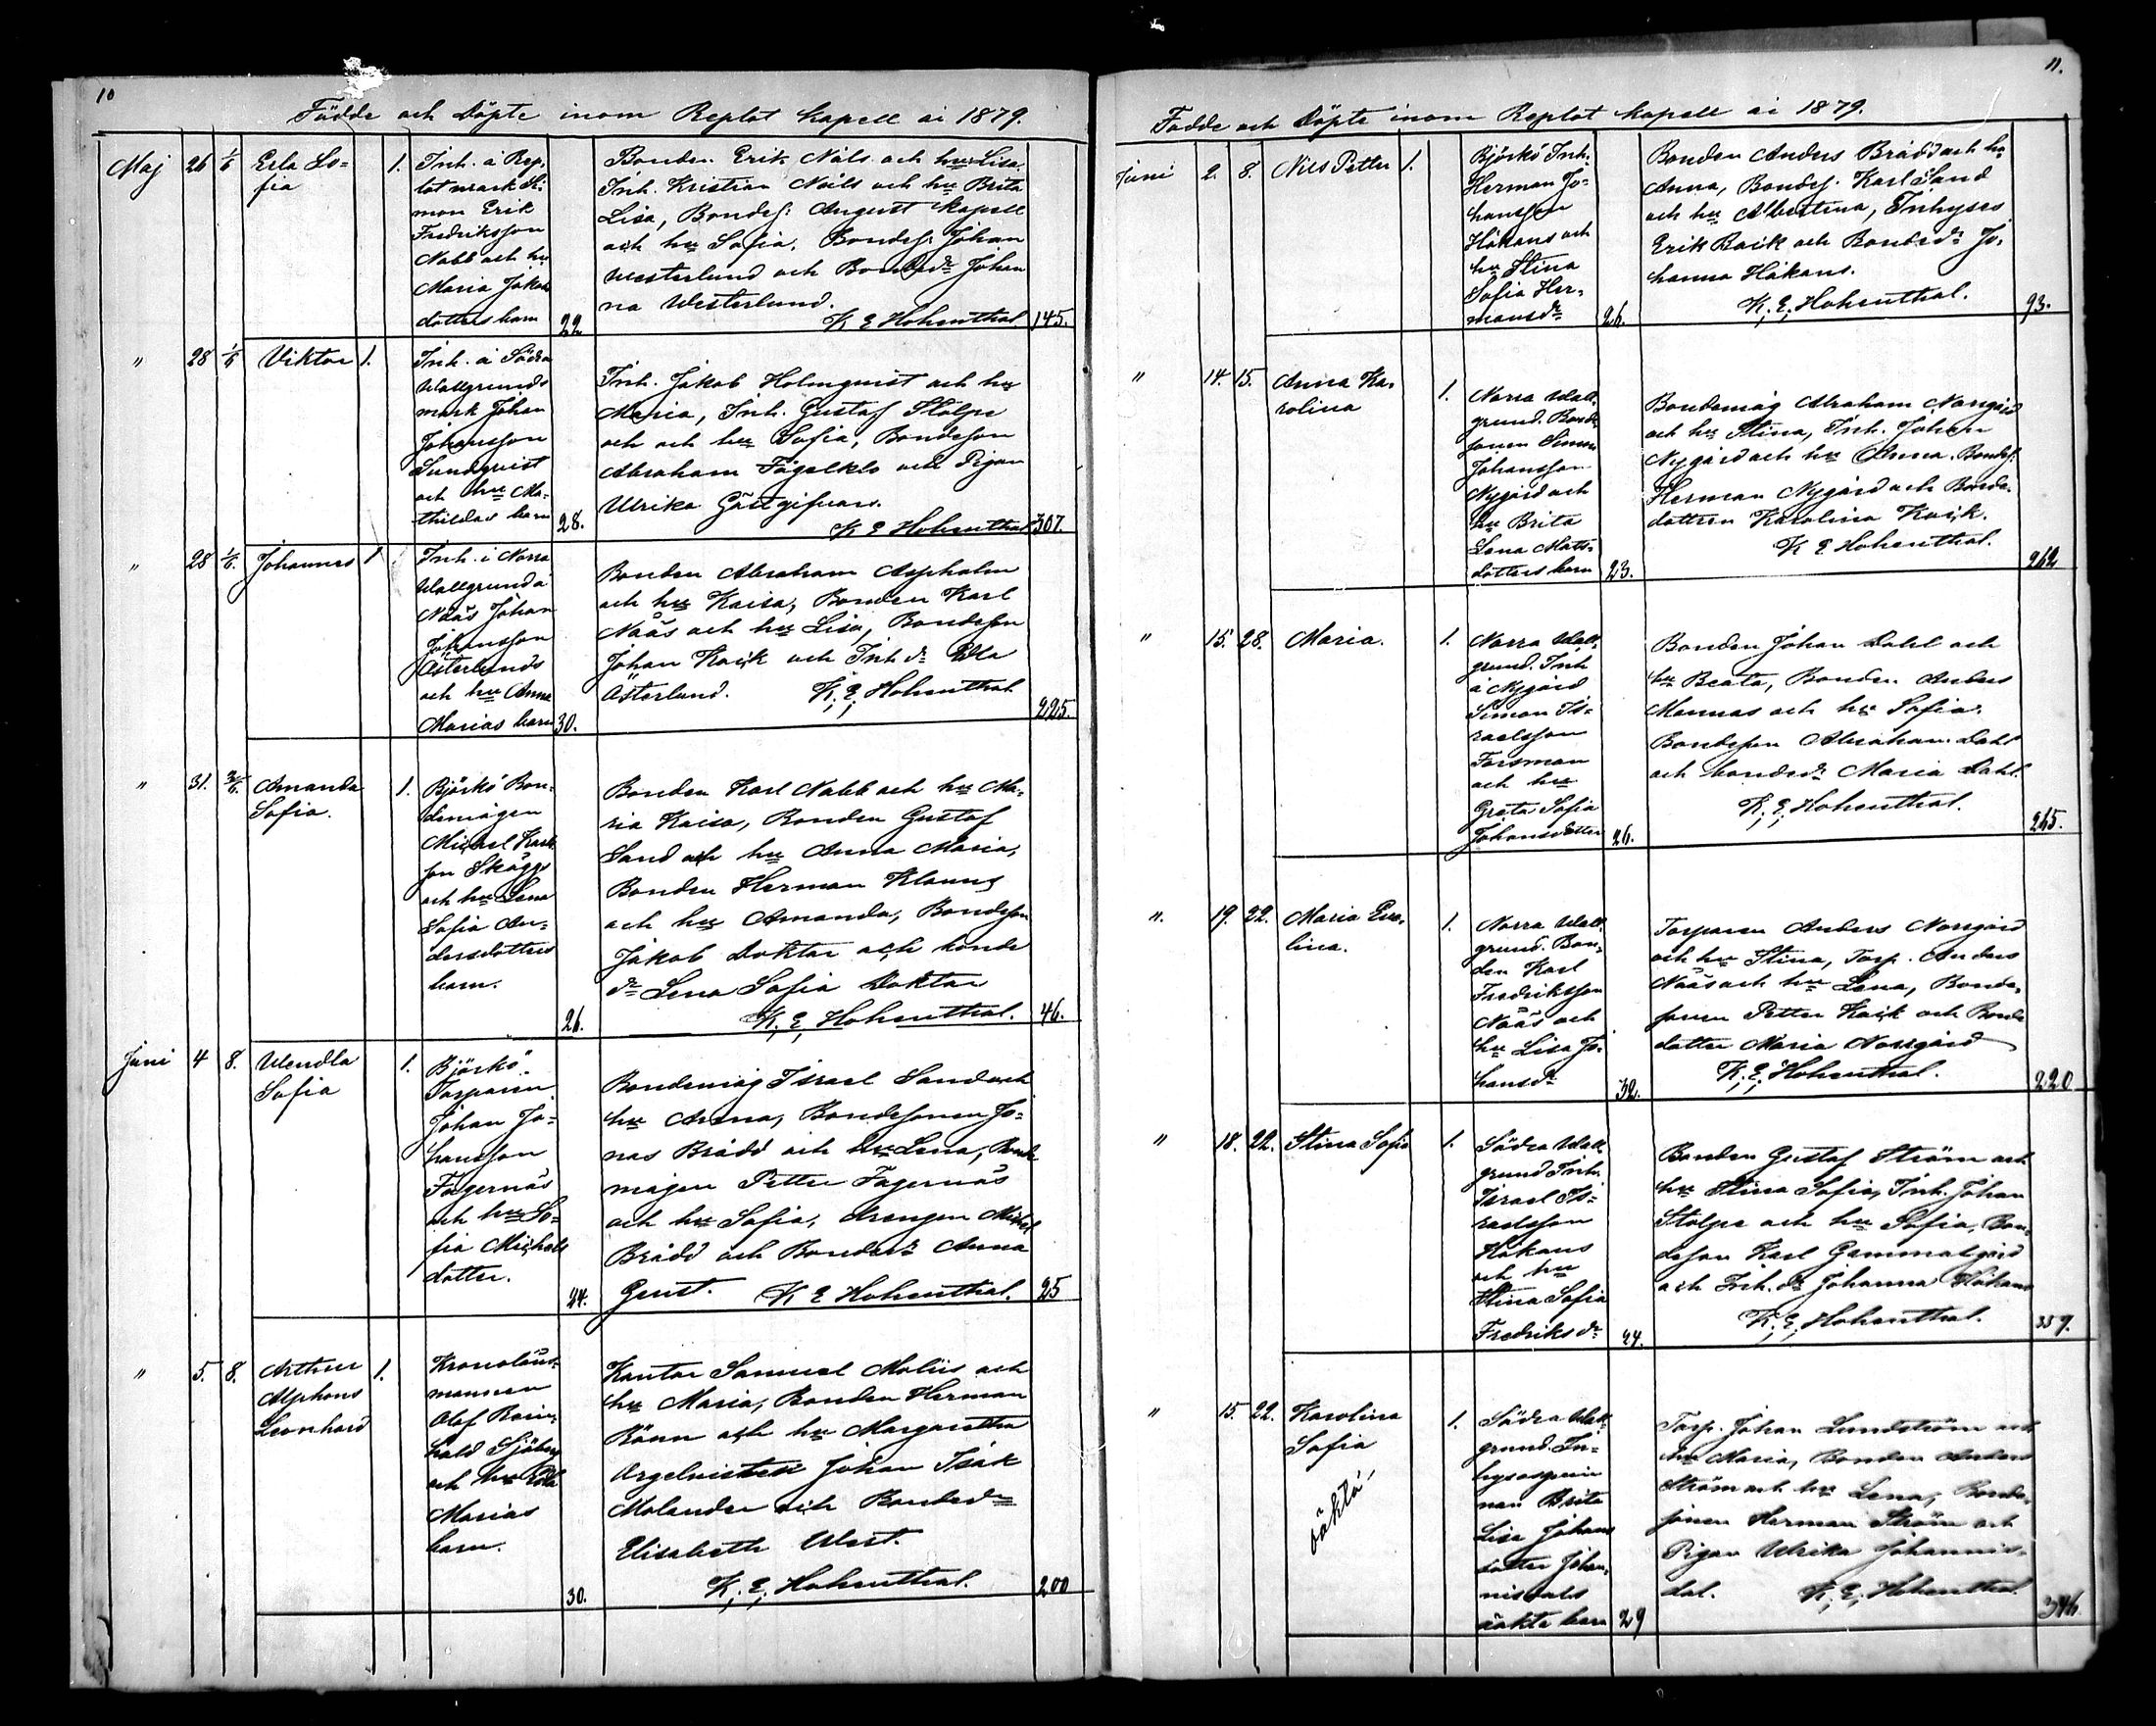 10
Födde och Döpte inom Replot kapell år 1879.
Maj 26 1/6 Erla So=
fia
1.
Inh. å Rep,
lot mark Si=
mon Erik
Fredriksson
Nabb och hu
Maria Jakobs
dotters barn
22.
Bonden Erik Näls och hu Lisa.
Inh. Kristian Näls och hu Brita
Lisa, Bondes: August Kapell
och hu Sofia, Bondes: Johan
Westerlund och Bonded:r Johan
na Westerlund.
K E Hohenthal
145.
" 28 1/6 Viktor 1.
Inh. å Södra
Wallgrunds
mark Johan
Johansson
Sundqvist
och hu Ma=
thildas barn
28.
Inh. Jakob Holmqvist och hu
Maria, Inh. Gustaf Stolpe
och och hu Sofia, Bondeson
Abraham Fogelklo och Pigan
Ulrika Gästgifvars.
K E Hohenthal
307.
" 28 1/6. Johannes 1
Inh. i Norra
Wallgrund å
Näås Johan
Johansson
Österlunds
och hu Anna
Marias barn
30.
Bonden Abraham Aspholm
och hu Kaisa, Bonden Karl
Näås och hu Lisa, Bondeson
Johan Kaik och Inh. d:r Edla
Österlund. K. E. Hohenthal
225.
" 31. Amanda
Sofia.
1.
Björkö Bon=
demågen
Michel Karls
son Skäggs
och hu Lena
Sofia An=
dersdotters
barn.
26.
Bonden Karl Nabb och hu Ma=
ria Kaisa, Bonden Gustaf
Sand och hu Anna Maria,
Bonden Herman Klauus
och hu Amanda, Bondeson
Jakob Doktar och bonde
d:r Lena Sofia Doktar
K. E. Hohenthal.
46.
Juni 4 8. Wendla
Sofia
1.
Björkö.
Torparen
Johan Jo=
hansson
Fagernäs
och hu So=
fia Michels
dotter.
24.
Bondemåg Israel Sand och
hu Anna, Bondesonen Jo=
nas Brådd och hu Lena, Bonde
mågen Petter Fagernäs
och hu Sofia, drengen Michel
Brådd och Bonded:r Anna
Gust. K E Hohenthal.
25
" 5. 8. Arthur
Alphons
Leonhard
1.
Kronoläns=
mannen
Olof Rein,
hold Sjöberg
och hu Edla
Marias
barn.
30.
Kantor Samuel Moliis och
hu Maria, Bonden Herman
Rönn och hu Margaretha
Orgelnisten Johan Isak
Molander och Bonded:r
Elisabeth West.
K. E. Hohenthal.
200
11.
Födde och Döpte inom Replot kapell år 1879.
Juni 2. 8. Nils Petter 1.
Björkö Inh.
Herman Jo=
hansson
Håkans och
hu Stina
Sofia Her=
mansd:r
26.
Bonden Anders Brådd och hu
Anna, Bondes. Karl Sand
och hu Albertina, Inhyses
Erik Back och Bonded:r Jo,
hanna Håkans.
K. E. Hohenthal.
93.
" 14. 15. Anna Ka,
rolina
1.
Norra Wall,
grund. Bonde
sonen Simon
Johansson
Nygård och
hu Brita
Lena Matts=
dotters barn
23.
Bondemåg Abraham Norrgård
och hu Stina, Inh. Johan
Nygård och hu Anna. Bondes:
Herman Nygård och Bonde,
dottren Karolina Kaik.
K E Hohenthal.
262
" 15. 28. Maria.
1.
Norra Wall,
grund. Inh
å Nygård
Simon Is=
raelsson
Forsman
och hu
Greta Sofia
Johansdotter
26.
Bonden Johan Dahl och
hu Beata, Bonden Anders
Mannas och hu Sofia.
Bondeson Abraham Dahl
och bonded:r Maria Dahl.
K. E. Hohenthal.
265.
". 19. 22. Maria Eve,
lina.
1.
Norra Wall,
grund. Bon,
den Karl
Fredriksson
Näås och
hu Lisa Jo,
hansd:r
32.
Torparen Anders Norrgård
och hu Stina, Torp. Anders
Näås och hu Lena, Bonde,
sonen Petter Kaik och Bonde
dotter Maria Norrgård
K. E. Hohenthal.
220
" 18. 22. Stina Sofia
1.
Södra Wall,
grund Inh.
Israel Is=
raelsson
Håkans
och hu
Stina Sofia
Fredriksd:r
24.
Bonden Gustaf Ström och
hu Stina Sofia, Inh. Johan
Stolpe och hu Sofia, Bon=
deson Karl Gammalgård
och Inh. d:r Johanna Håkans
K. E. Hohenthal.
359.
" 15. 22. Karolina
Sofia
oäkta,
1.
Södra Wall,
grund. In=
hysespin
nan Brita
Lisa Johans
dotter Johan,
nisdals
oäkta barn
29
Torp. Johan Lundström och
hu Maria, Bonden Anders
Ström och hu Lena, Bonde,
sonen Herman Ström och
Pigan Ulrika Johannis=
dal. K. E. Hohenthal
346.